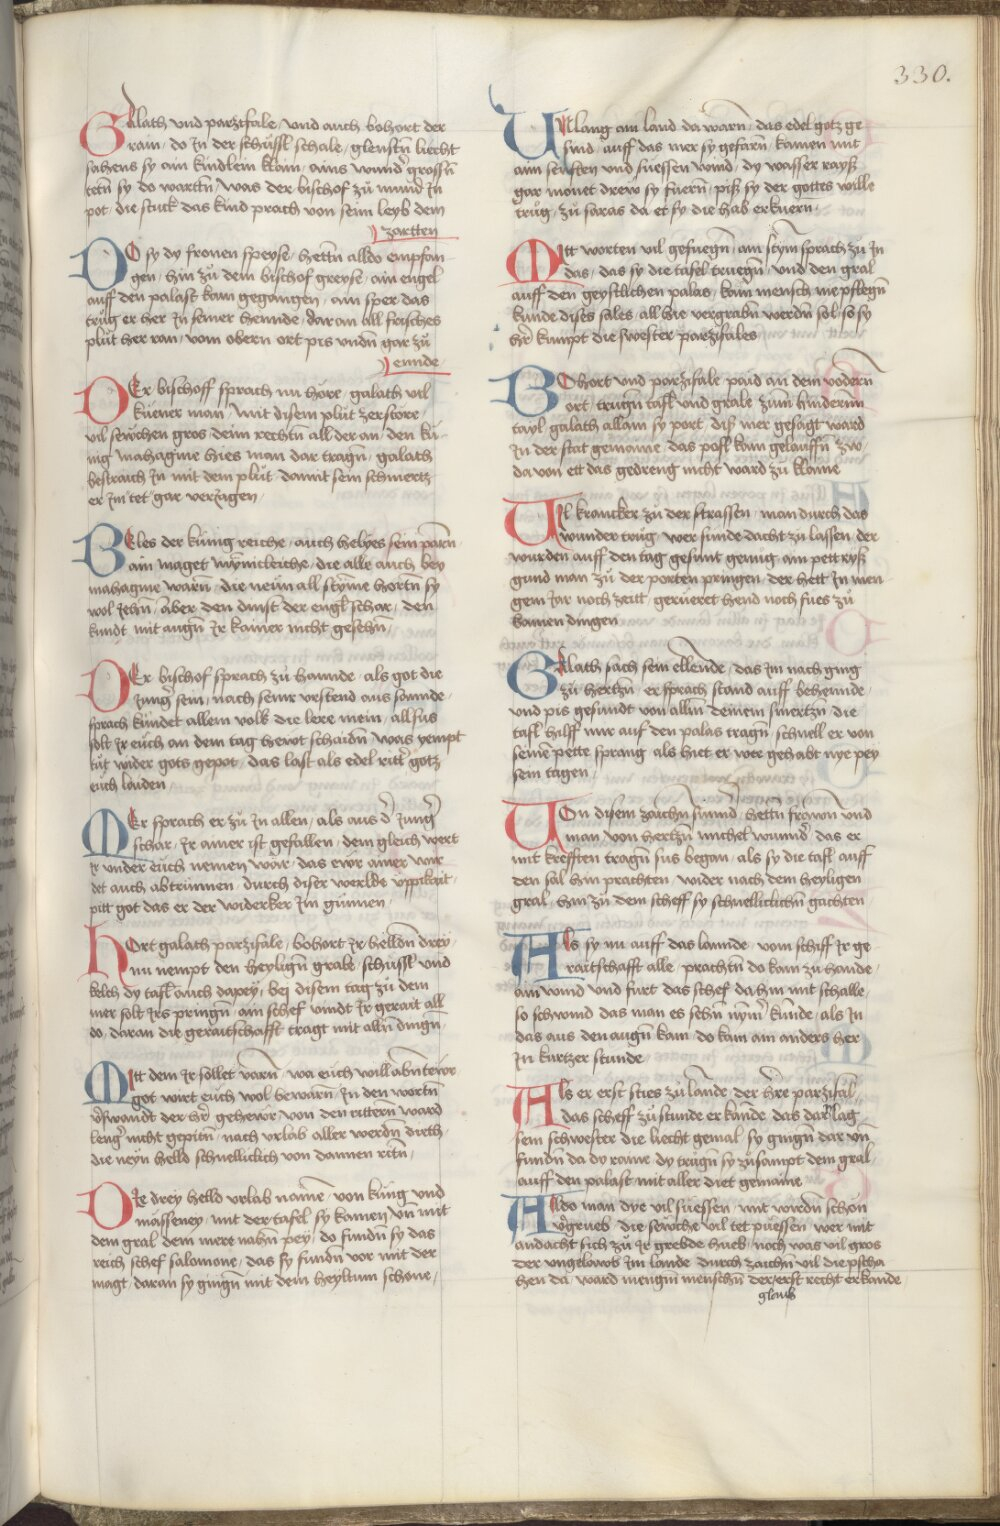 330.
Galath vnd partzifale / vnd auch bohort der
rain / do Jn der schüssl schale / glenstn liecht
sahens sy ain kindlein klain / ains wundˀ grossn̄
tetn̄ sy do wartn̄ / was der bischof zu mund Jn
pot / die stuck das kind prach von seim leyb dem
zartten
DO sy dy fronen speyse / hettn̄ alldo empfan
gen / hin zu dem bischof greyse / ain engel
auff den palast kam gegangen / ain sper das
trug er her Jn seiner hennde / dar an all frisches
plůt her ran / vom obern ort pis vndn̄ gar zů
ennde
DEr bischoff sprach nu hőre / galath vil
küener man / mit disem plůt zerstőre /
vil sewchen gros / deim rechtn̄ all der an / den kü
nig mahagine hies man dar tragn̄ / galath
bestraich Jn mit dem plůt / damit sein schmertz
er Jm tet gar verzagen /
BEles der künig reiche / auch helyes sein parn̄
ain maget wymicleiche / die alle auch bey
mahagine warn̄ / die neün all styme hortn̄ sy
wol Jehn̄ / aber den dinst der engl schar / den
kundt mit augn̄ Jr kainer nicht gesehn̄ /
DEr bischof sprach zů hannde / als got die
Jungˀ sein / nach seinr vrstend aus sannde /
sprach kündet allem volk die lere mein / allsus
solt Jr eüch an dem tag hewt schaidn̄ / was yempt
tůt wider gots gepot / das last als edel rittˀ gotz
euch laiden /
MEr sprach er zů Jn allen / als aus dˀ Jungˀ
schar / Jr ainer ist gefallen / dem gleich wert
Jr vnder eüch nemen war / das ewr ainer wir
det auch abtrünnen / durch diser werlde üppikait /
pitt got das er der widerker Jm günnen /
HOrt galath parzifale / bohort Jr helldn̄ drey
nu nempt den heylign̄ grale / schüssl vnd
kelch dy tafl auch dapey / bej disem tag zu dem
mer solt Jrs pringn̄ / ain schef vindt Jr gerait all
do / daran die geraitschafft tragt mit alln̄ dingn̄ /
MItt dem Jr sollet varn̄ / wa eüch will abntewr
got wirt eüch wol bewarn̄ / Jn den wortn̄
vˀswandt der hrˀ gehewr / von den rittern ward
lengˀ nicht gepitn̄ / nach vrlab aller werdn̄ dieth /
die neyn helld schnellicklich von dannen ritn̄ /
DIe drey helld vrlab name / von künig vnd
mässeney / mit der tafel sy kamen / vn̄ mit
dem gral / dem mere nahn̄ pey / do fundn̄ sy das
reich schef salomone / das sy fundn̄ vor mit der
magt / daran sy gingn̄ mit dem heyltum schone /
VIl lang am land da warn̄ / das edel gotz ge
sind / auff das mer sy gefarn̄ / kamen mit
aim senften vnd suessen wind / dy wasser rayß
gar monet drew sy fuern / piß sy der gottes wille
trůg / zů saras da et sy / die hab erkuern /
MItt worten vil gefuegn̄ / ain stym sprach zů Jn
das / das sy die tafel truegn̄ / vnd den gral
auff den geystlichen palas / kain mensch nie pflegn̄
kunde dises sales / all hie vergrabn̄ werdn̄ sol / so sy
hˀr kumpt die swester parzifales
BOhort vnd parzifale / paid an dem vodern
ort / trugn̄ tafl vnd grale / zum hinderrn
tayl galath allain sy port / diß mer gesagt ward
Jn der stat gemaine / das pofl kam gelauffn̄ zw /
da von ett das gedreng nicht ward zu klaine
VIl krancker zů der strassen / man durch das
wunder trůg / wer sunde dacht zu lassen / der
wurden auff den tag gesunt genůg / ain pettryß
gund man zů der porten pringen / der hett Jn men
gem Jar noch zeitt / gerüeret hend noch fues zů
kainen dingen
GAlath sach sein ellende / das Jm nach ging
zů hertzn̄ / er sprach stand auff behennde /
vnd pis gesundt von alln̄ deinem smertzn̄ / die
tafl hilff mir auf den palas tragn̄ / schnell er von
seinē pette sprang / als hiet er wee gehabt nye pey
sein tagen /
VOn disem zaichn̄ sunndˀ / hettn̄ frawn̄ vnd
man / von hertzn̄ michel wundˀ / das er
mit krefften tragn̄ sus began / als sy die tafl auff
den sal hin prachten / wider nach dem heyligen
gral / hin zu dem scheff sy schnellicklichn̄ gachten /
Als sy nu auff das lannde / vom schiff Jr ge
raitschafft alle / prachtn̄ do kam zu hande /
ain wind vnd furt das schef dahin mit schalle /
so schwind das man es sehn̄ nymˀ kunde / als Jn
das aus den augn̄ kam / do kam ain anders her
Jn kurtzer stunde
Als er erst sties zů lande / der here parzifal /
das scheff zů stunde erkande / das dar Jn lag
sein schwester die liecht gemal / sy gingn̄ dar vn̄
fundn̄ da dy raine / dy trugn̄ sy zůsampt dem gral /
auff den palast mit aller diet gemaine
Alldo man dye vil süessen / mit wirdn̄ schon
vˀgrueb / die sewche vil tet püessen / wer mit
andacht sich zů Jr grebde hueb / noch was vil gros
der vngelawb Jm lande / durch zaichn̄ vil die pscha
hen da / ward mengm menschn̄ der erst recht erkande
glaub